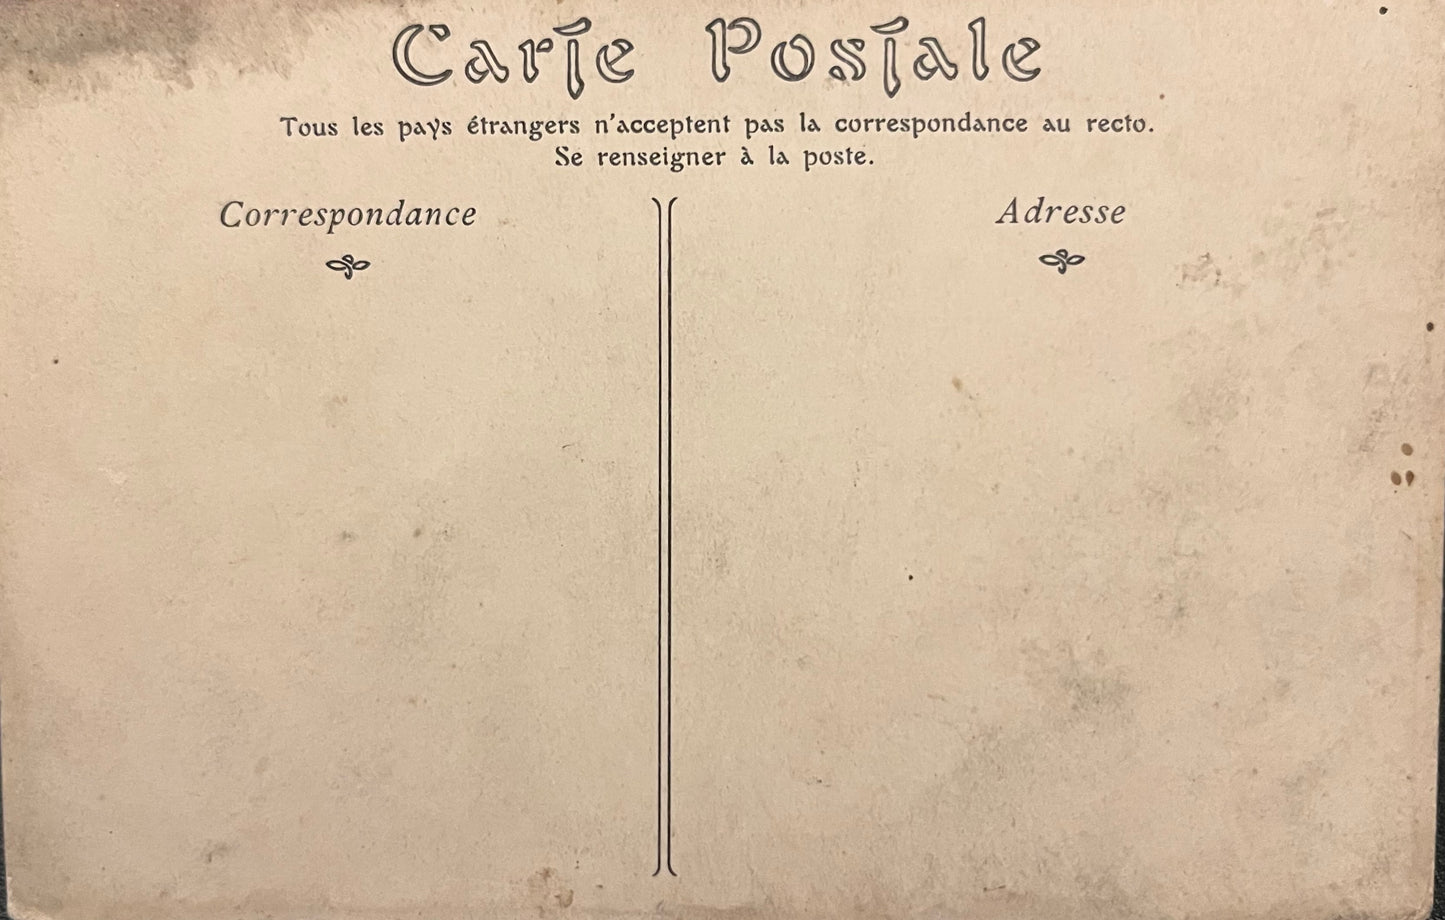 Carte Postale
Tous les pays étrangers n'acceptent pas la correspondance au recto.
Se renseigner à la poste.
Correspondance
Adresse